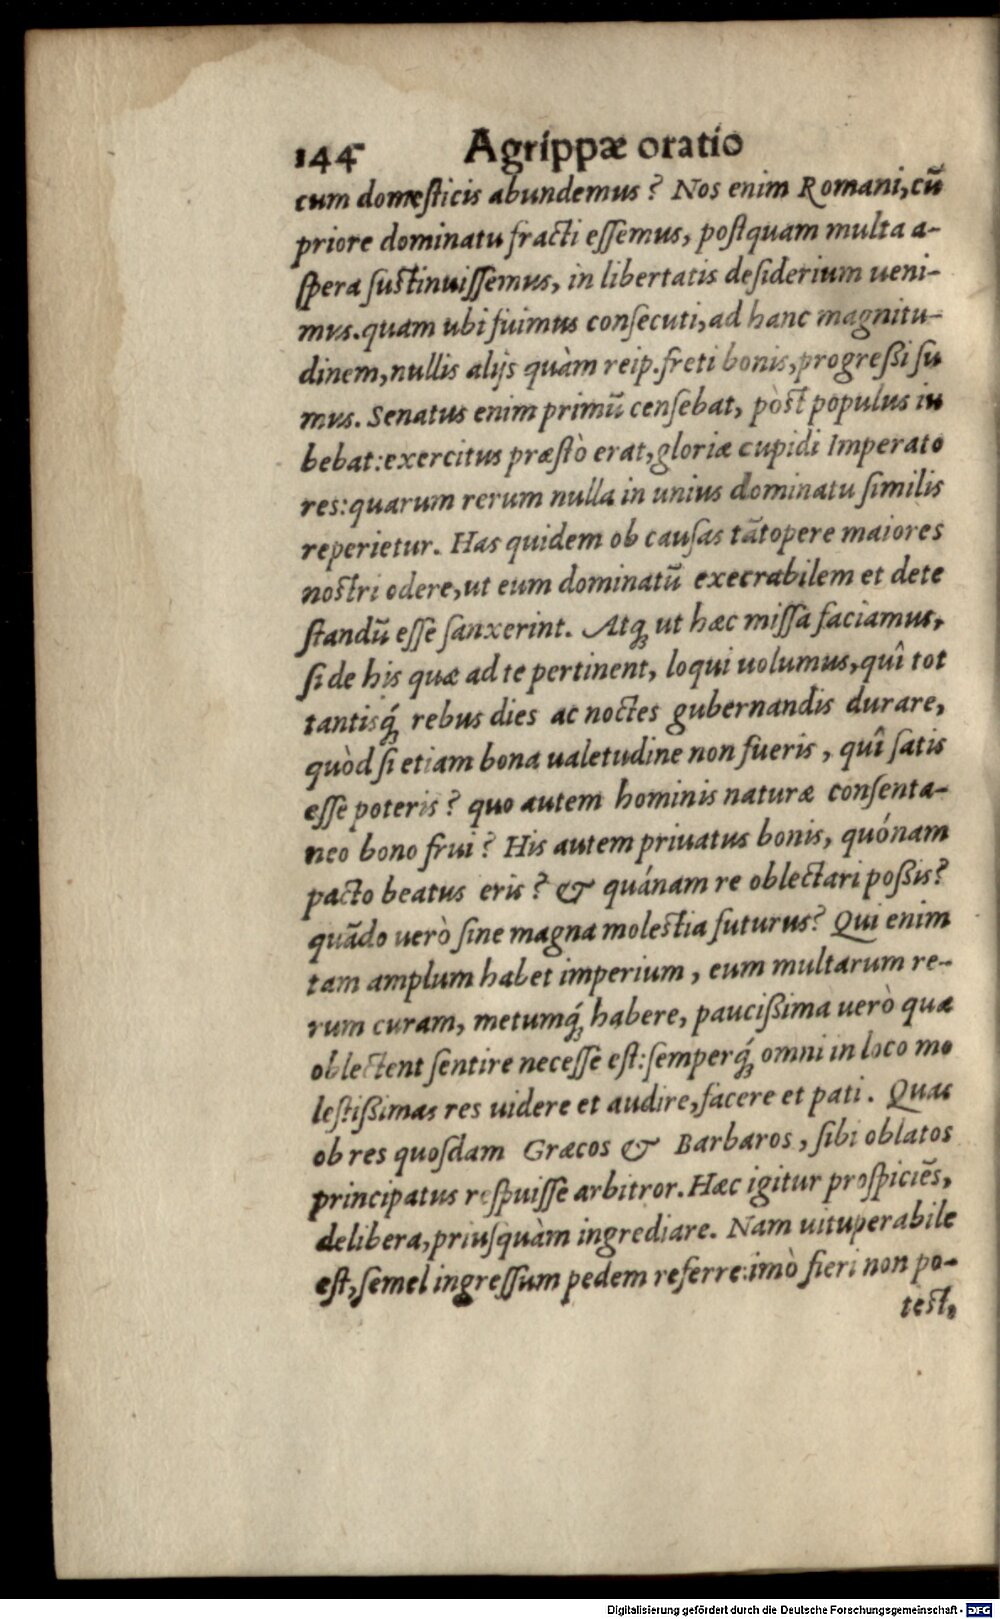 144 Agrippæ oratio
cum domesticis abundemus? Nos enim Romani, cū
priore dominatu fracti essemus, postquam multa a-
spera sustinuissemus, in libertatis desiderium ueni-
mus. quam ubi fuimus consecuti, ad hanc magnitu-
dinem, nullis alijs quàm reip. freti bonis, progreßi su
mus. Senatus enim primū censebat, pòst populus iu
bebat: exercitus præstò erat, gloriæ cupidi Imperato
res: quarum rerum nulla in unius dominatu similis
reperietur. Has quidem ob causas tātopere maiores
nostri odere, ut eum dominatū execrabilem et dete
standū esse sanxerint. Atq; ut hæc missa faciamus,
si de his quæ ad te pertinent, loqui uolumus, quî tot
tantisq́; rebus dies ac noctes gubernandis durare,
quòd si etiam bona ualetudine non fueris, quî satis
esse poteris? quo autem hominis naturæ consenta-
neo bono frui? His autem priuatus bonis, quónam
pacto beatus eris? & quánam re oblectari poßis?
quādo uerò sine magna molestia futurus? Qui enim
tam amplum habet imperium, eum multarum re-
rum curam, metumq́; habere, paucißima uerò quæ
oblectent sentire necesse est: semperq́; omni in loco mo
lestißimas res uidere et audire, facere et pati. Quas
ob res quosdam Græcos & Barbaros, sibi oblatos
principatus respuisse arbitror. Hæc igitur prospiciēs,
delibera, priusquàm ingrediare. Nam uituperabile
est, semel ingressum pedem referre: imò fieri non po-
test,
Digitalisierung gefördert durch die Deutsche Forschungsgemeinschaft - DFG